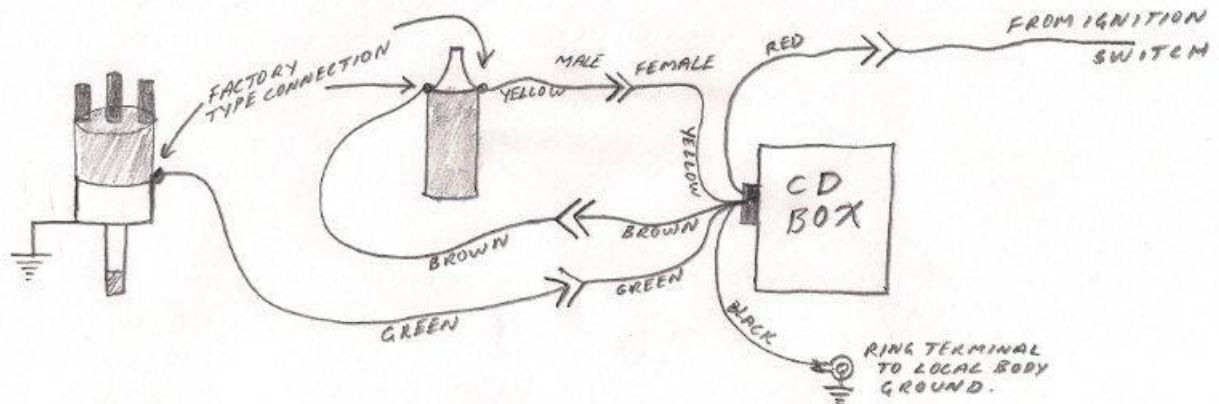 FACTORY
TYPE CONNECTION
MALE
FEMALE
YELLOW
YELLOW
RED
FROM IGNITION
SWITCH
CD
BOX
BROWN
BROWN
GREEN
GREEN
BLACK
RING TERMINAL
TO LOCAL BODY
GROUND.